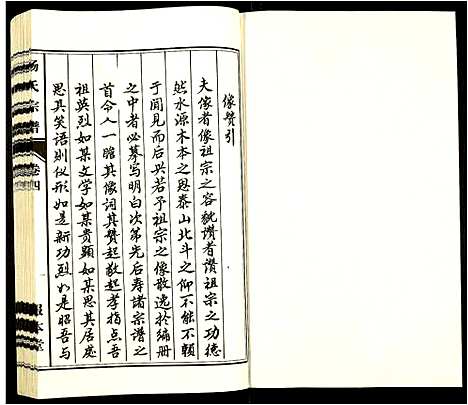 像贊引
夫像者像祖宗之容貌讚者讚祖宗之功德
然水源木本之恩泰山北斗之仰不能不賴
于聞見而后兴若予祖宗之像散逸於編册
之中者必摹写明白次第先后寿諸宗谱之
首令人一瞻其像词其贊起敬起孝指点吾
祖英烈如某文学如某贵顯如某思其居处
思其笑语則仪形如是新功烈如是昭吾与
杨氏宗谱
卷四
報本堂